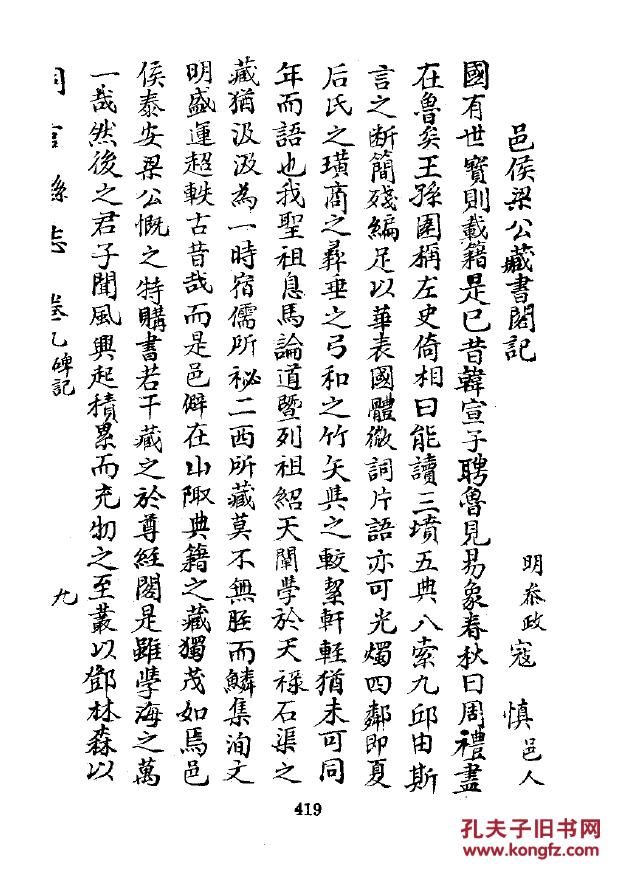 邑侯梁公藏書閣記
明叅政 寇慎 邑人
國有世寶則載籍是已昔韓宣子聘魯見易象春秋曰周禮盡
在魯矣王孫圉稱左史倚相曰能讀三墳五典八索九邱由斯
言之断簡殘編足以華表國體微詞片語亦可光燭四鄰即夏
后氏之璜商之彞垂之弓和之竹矢與之較絜軒輊猶未可同
年而語也我聖祖息馬論道暨列祖紹天闡學於天祿石渠之
藏猶汲汲為一時宿儒所祕二西所藏莫不無胫而鱗集洵文
明盛運超軼古昔哉而是邑僻在山陬典籍之藏獨茂如焉邑
侯泰安梁公慨之特購書若干藏之於尊經閣是雖學海之萬
一哉然後之君子聞風興起積累而充牣之至叢以鄧林森以
同官縣志 卷乙碑記 九
419
孔夫子旧书网
www.kongfz.com